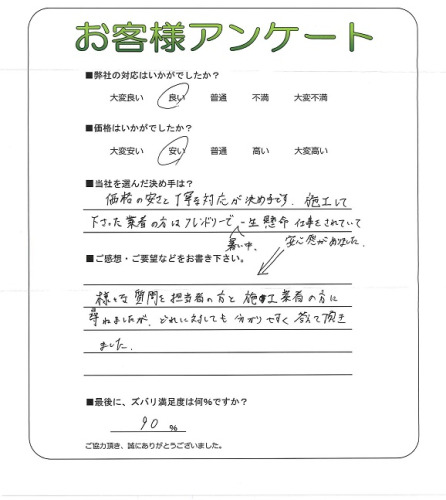 お客様アンケート
■弊社の対応はいかがでしたか?
大変良い 良い 普通 不満 大変不満
■価格はいかがでしたか?
大変安い 安い 普通 高い 大変高い
■当社を選んだ決め手は?
価格の安さと丁寧な対応が決め手です。施工して
下さった業者の方はフレンドリーで、一生懸命仕事をされていて
暑い中、
安心感がありました。
■ご感想・ご要望などをお書き下さい。
様々な質問を担当者の方と施工業者の方に
尋ねましたが、どれに対しても分かりやすく答えて頂き
ました。
■最後に、ズバリ満足度は何%ですか?
90 %
ご協力頂き、誠にありがとうございました。